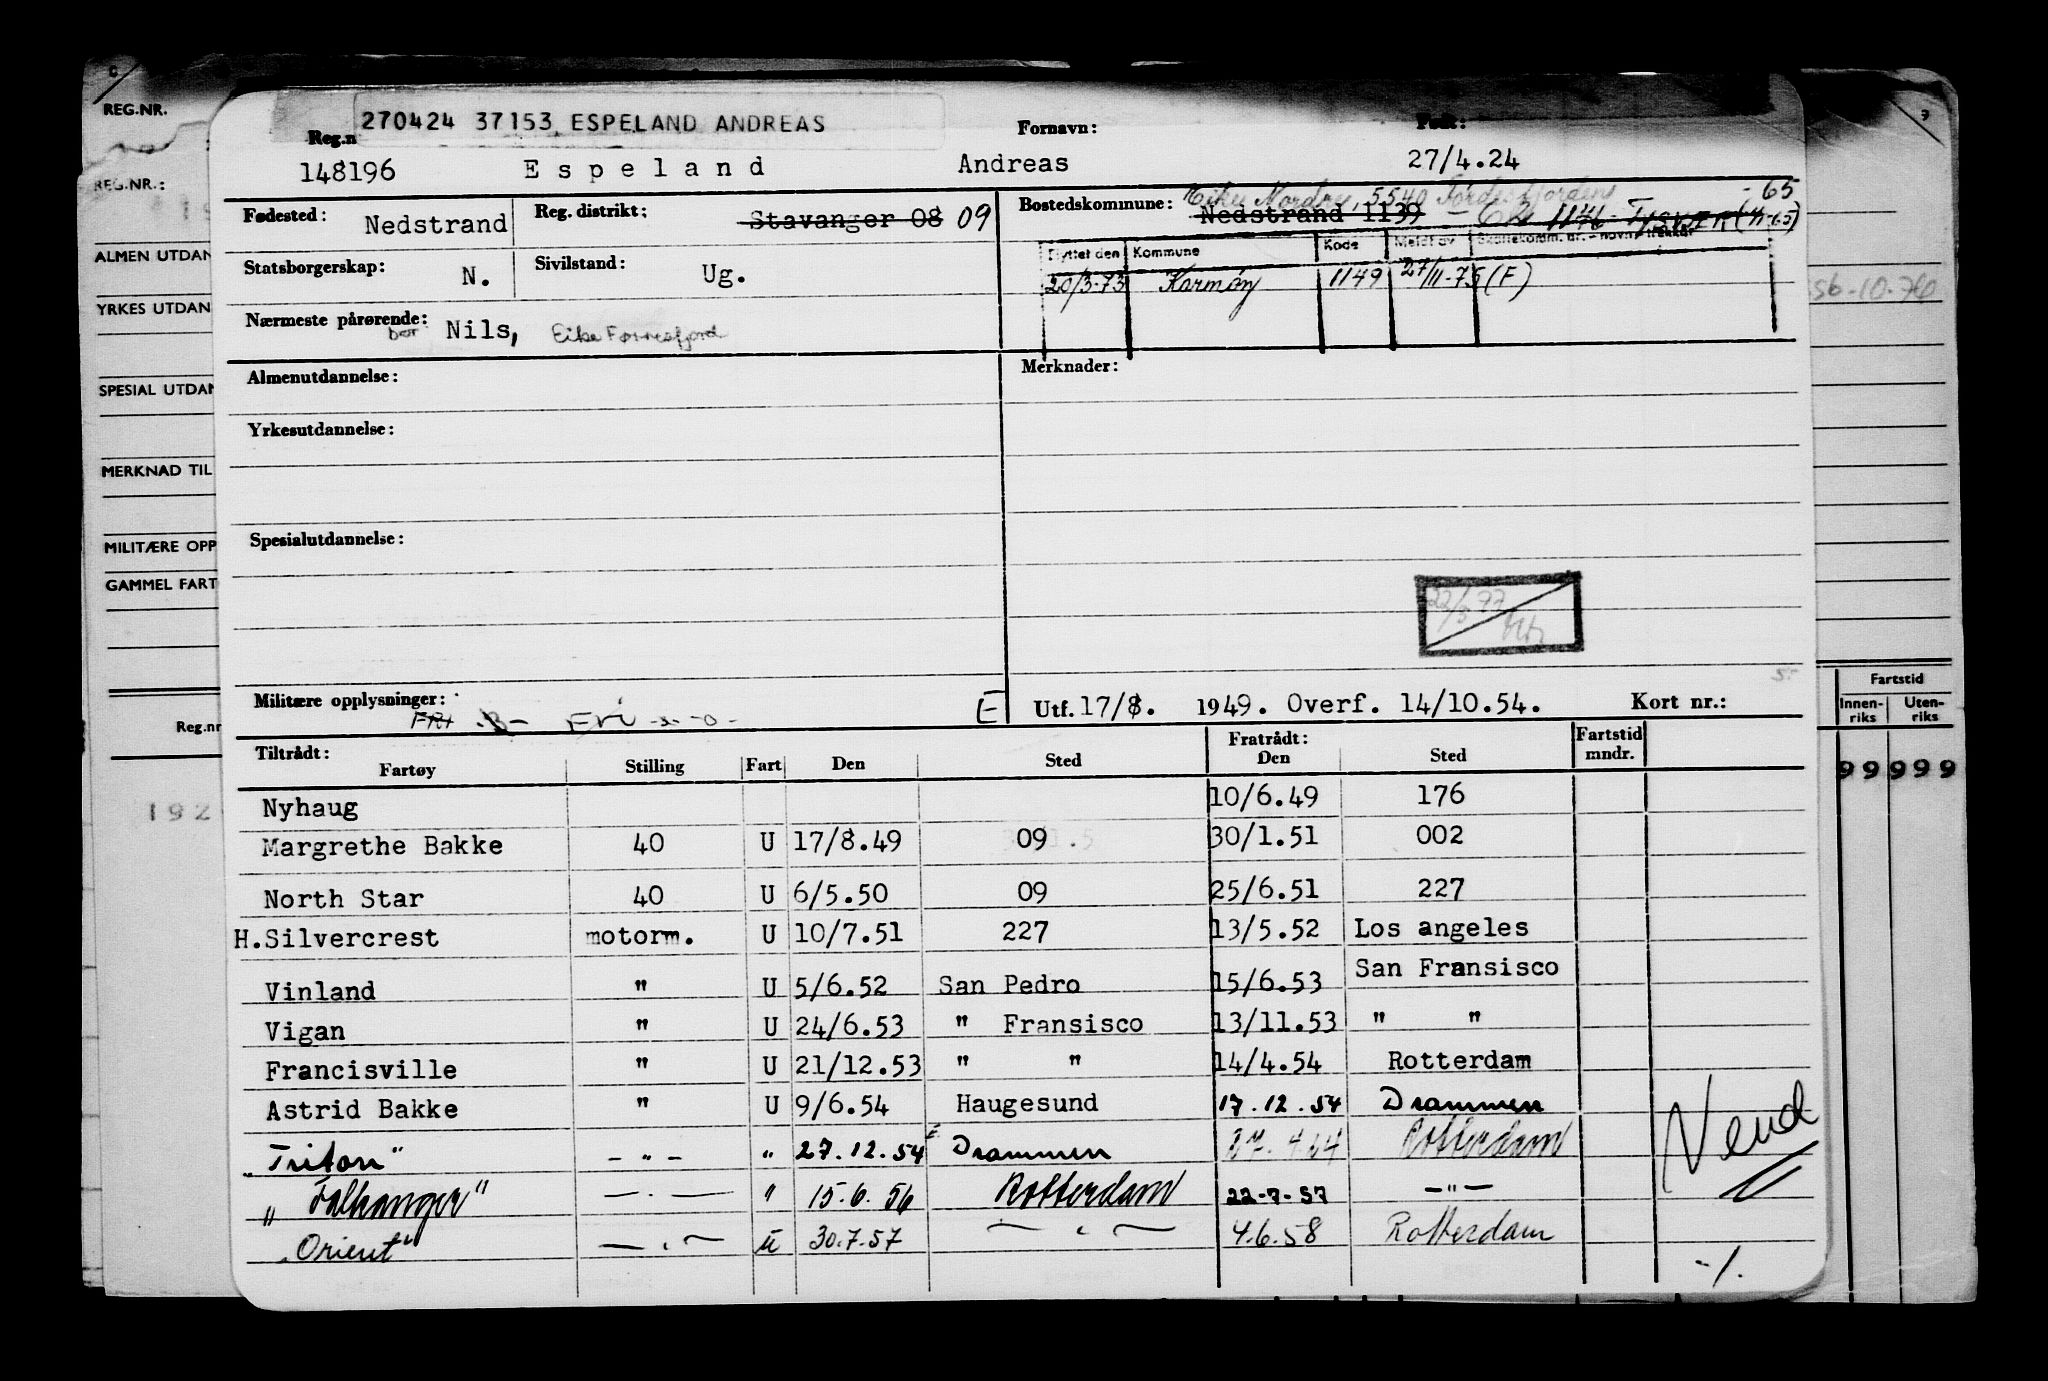 REG.NR.
REG.NR.:
ALMEN UTDAN
YRKES UTDAN
SPESIAL UTDAN
MERKNAD TIL
MILITÆRE OPP
GAMMEL FART
Reg.nr
192
270424 37153 ESPELAND ANDREAS
Reg.n Fornavn: Født:
148196 Espeland Andreas 27/4.24
Fødested: Nedstrand Reg. distrikt: Stavanger 08 09
Bostedskommune: Nordre, 5540 Førdesfjorden - 65
Nedstrand 1139 - 1146 - TYSVÆR
Flyttet den Kommune Kode Meldt av Skattekomm. nr. - navn - trekkår
20/3-73 Karmøy 1149 27/11-75 (F)
Statsborgerskap: N. Sivilstand: Ug.
Nærmeste pårørende: Nils, Eike
Almenutdannelse:
Merknader:
Yrkesutdannelse:
Spesialutdannelse:
22/3 77
Militære opplysninger: FRI B- Fri E
Utf. 17/8. 1949. Overf. 14/10.54. Kort nr.:
Fartstid
Innen-riks Uten-riks
99999
Tiltrådt: Fratrådt:
Fartøy Stilling Fart Den Sted Den Sted Fartstid mndr.
Nyhaug 10/6.49 176
Margrethe Bakke 40 U 17/8.49 09 30/1.51 002
North Star 40 U 6/5.50 09 25/6.51 227
H.Silvercrest motorm. U 10/7.51 227 13/5.52 Los angeles
Vinland " U 5/6.52 San Pedro 15/6.53 San Fransisco
Vigan " U 24/6.53 " Fransisco 13/11.53 " "
Francisville " U 21/12.53 " " 14/4.54 Rotterdam
Astrid Bakke " U 9/6.54 Haugesund 17.12.54 Drammen
„Triton" - " - " 27.12.54 Drammen Rotterdam
„Falkanger" - " - " 15.6.56 Rotterdam 22-7-57 - " -
„Orient" - " - U 30.7.57 - " - 4.6.58 Rotterdam
Vend
-/.